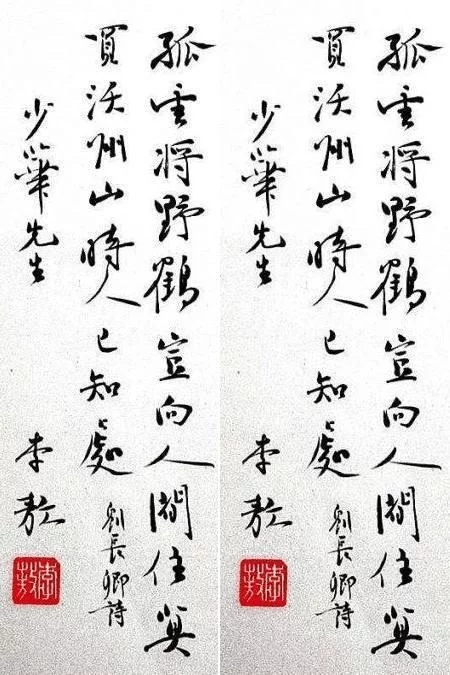 孤雲将野鶴豈向人間住莫
買沃州山時人已知處
劉長卿詩
少華先生
李敖
李敖
孤雲将野鶴豈向人間住莫
買沃州山時人已知處
劉長卿詩
少華先生
李敖
李敖